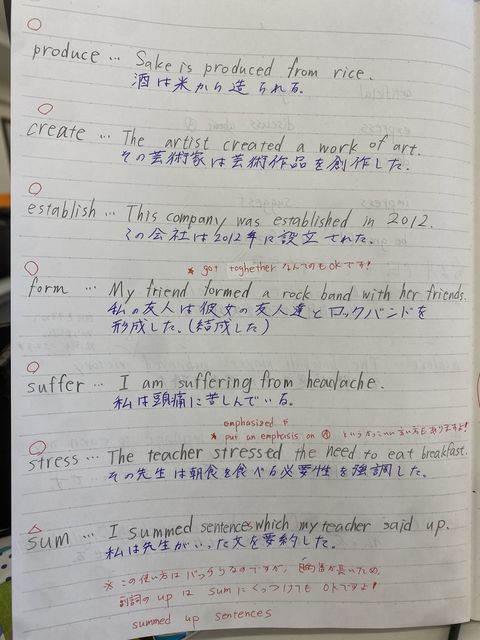 produce … Sake is produced from rice.
酒は米から造られる。
create … The artist created a work of art.
その芸術家は芸術作品を創作した.
establish … This company was established in 2012.
この会社は2012年に設立された.
* got toghether なんてのもOKです!
form … My friend formed a rock band with her friends.
私の友人は彼女の友人達とロックバンドを
形成した.(結成した)
suffer … I am suffering from headache.
私は頭痛に苦しんでいる.
emphasized や
* put an emphasis on というかっこいい言い方もありますよ!
stress … The teacher stressed the need to eat breakfast.
その先生は朝食を食べる必要性を強調した.
sum … I summed sentences which my teacher said up.
私は先生がいった文を要約した.
※ この使い方はバッチリなのですが, 目的語が長いため,
副詞の up は sum にくっつけても OKですよ!
summed up sentences